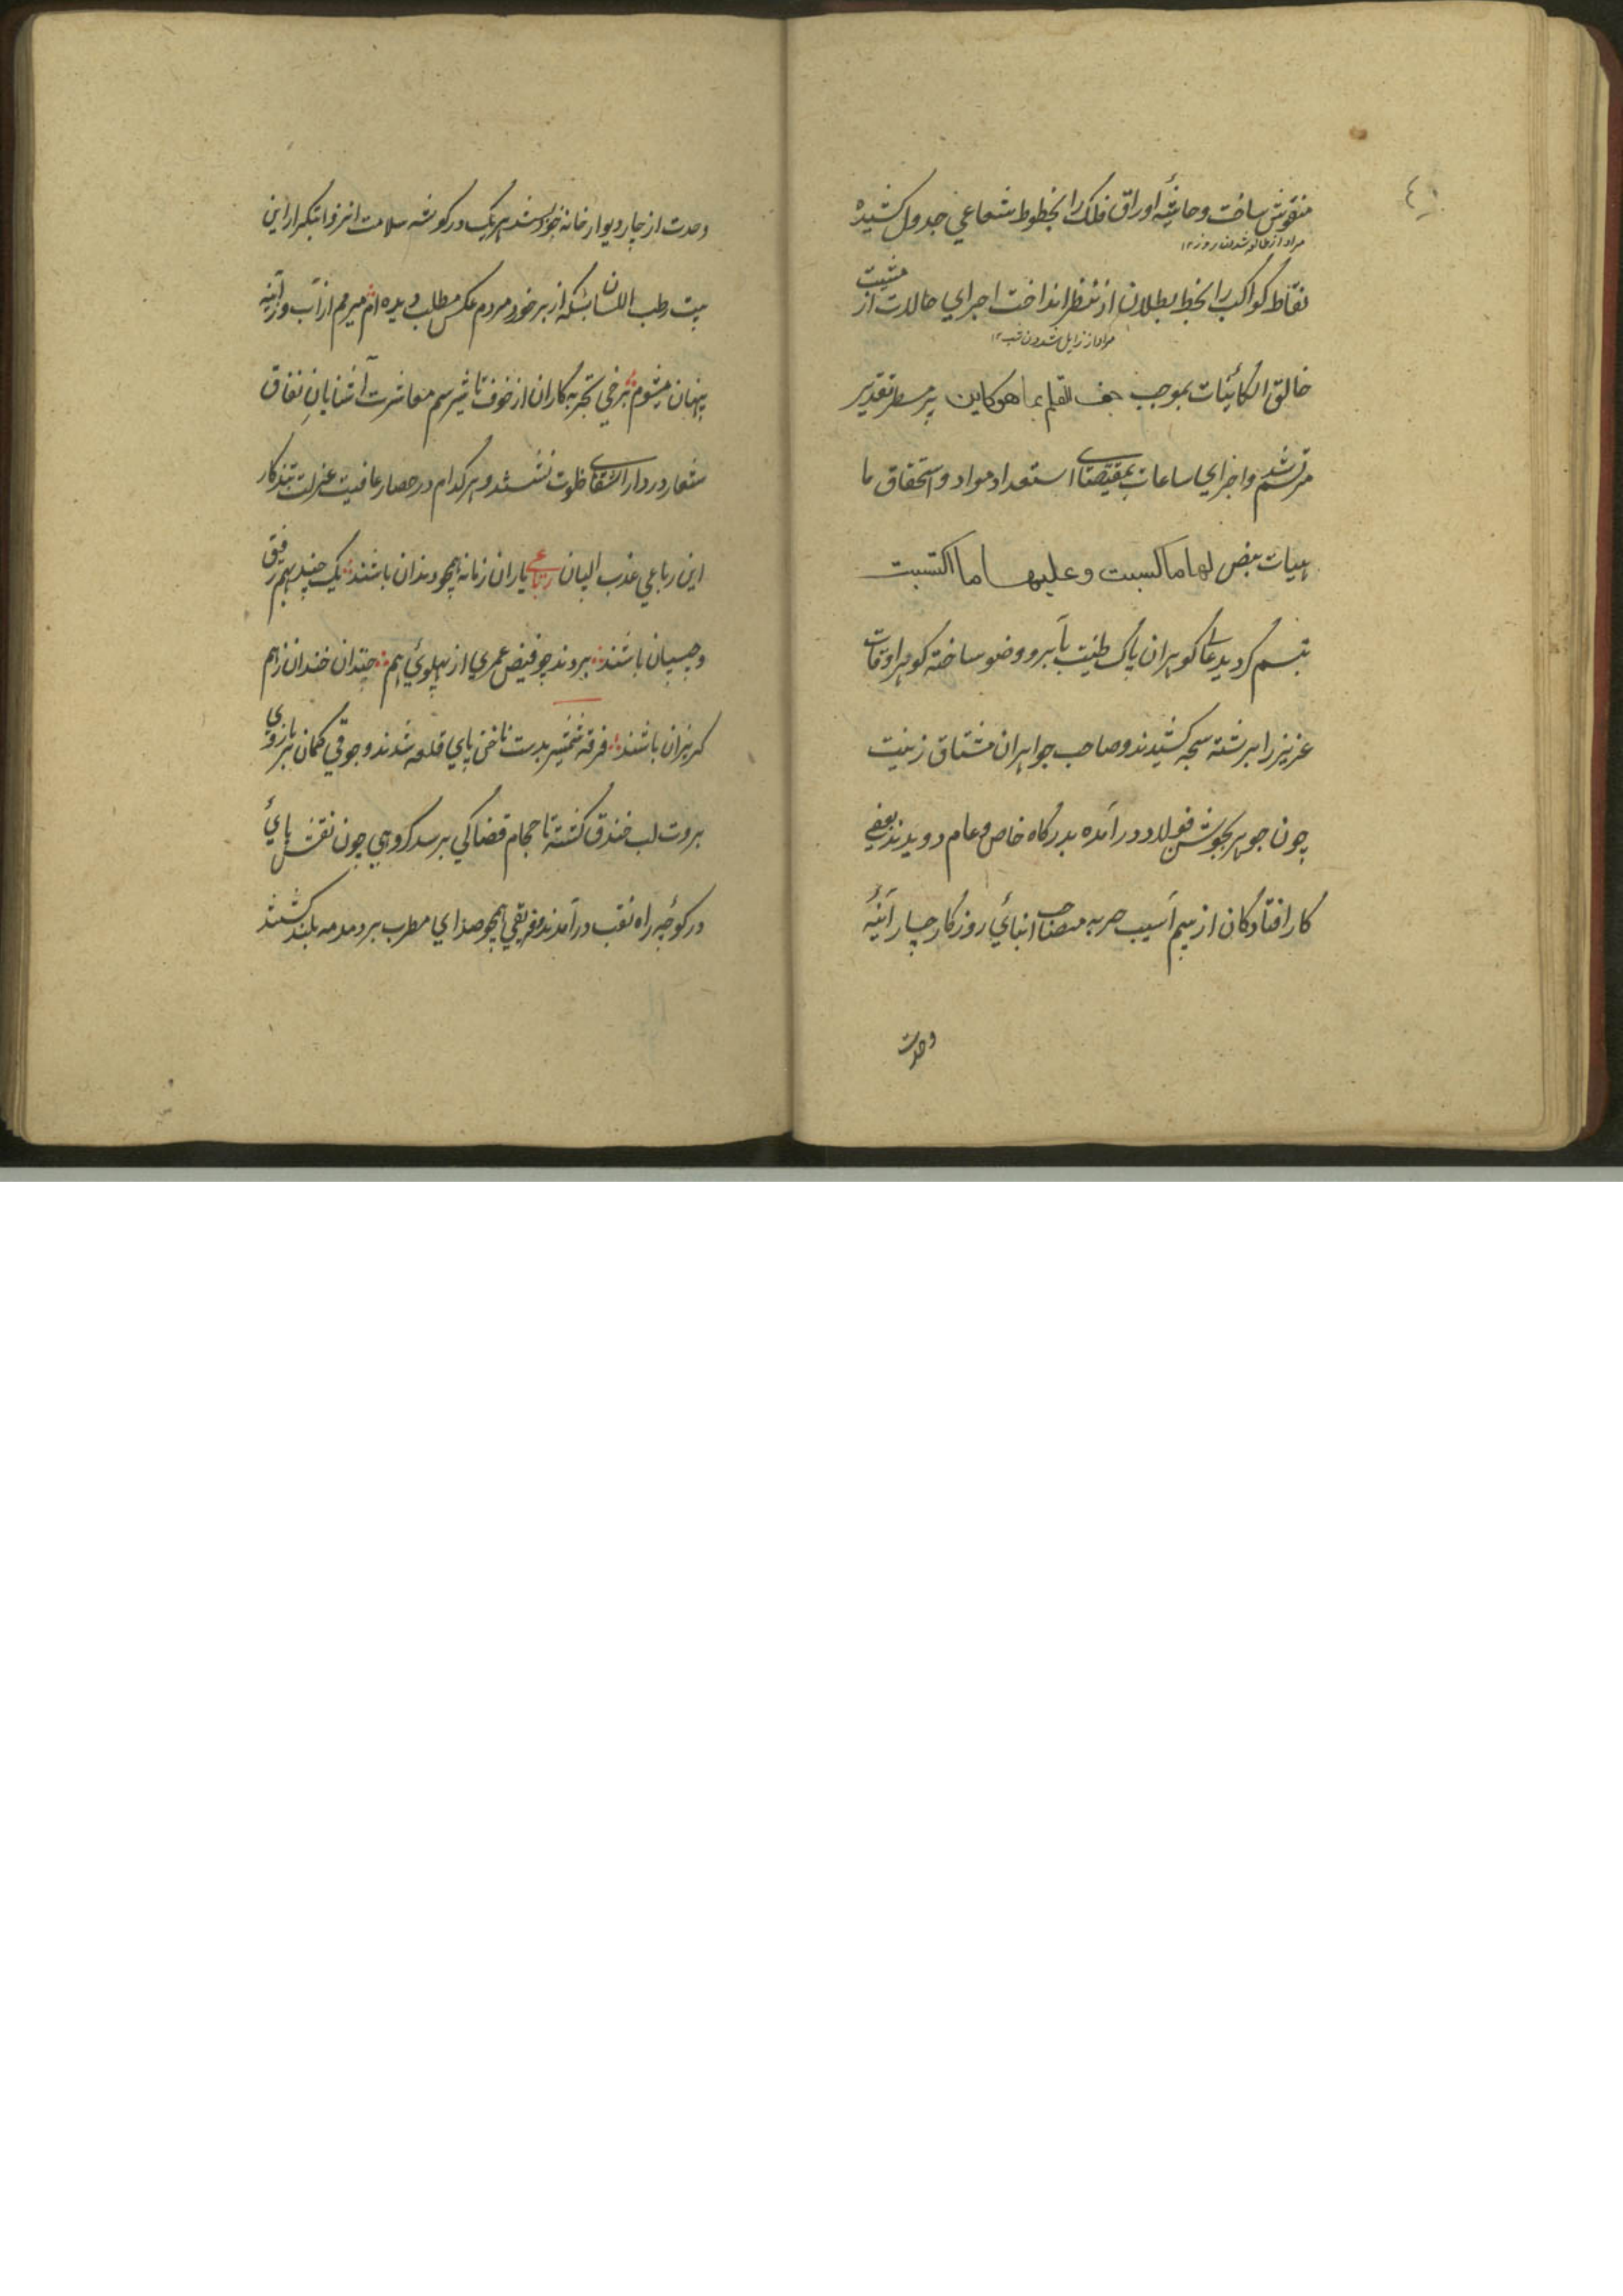 ٤٠
منقوش ساخت و حاشیهٔ اوراق فلک را بخطوط شعاعي جدول کشیده
مراد از طالع شدن روز ۱۲
نقاط کواکب را بخط بطلان از نظر انداخت اجراي حالات از مشیت
مراد از زایل شدن شب ۱۲
خالق الکائنات بموجب جف القلم بما هو کاین بر مسطر تقدیر
مرتسم شد و اجزاي ساعات بمقتضاے استعداد مواد و استحقاق ما
هیات بفض لها ما کسبت و علیها ما اکتسبت
تبسم کردید عا کوهران پاک طینت بآبرو وضو ساخته کوهر اوقات
عزیز را برشته سبحه کشیدند و صاحب جواهران مشتاق زینت
چون جوهر بجوشن فولاد در آمده بدرکاه خاص و عام دویدند بعضي
کار افتادکان از بیم آسیب حربه مصاحب ابناي روزکار چار آئینهٔ
وحدت
وحدت از چار دیوار خانه خود بستند هر یک در کوشه سلامت انزوا بتکرار این
بیت رطب اللسان بسکه از بر خورد مردم عکس مطلب دیده ام میرمم از آب و در آئینه
پنهان میشوم برخي تجربه کاران از خوف تاثیر سم معاشرت آشنایان نفاق
شعار در دار الشفاے خلوت نشستند و هر کدام در حصار عافیت عزلت بتذکار
این رباعي عذب البیان رباعي یاران زمانه همچو دندان باشند یک چند بهم رفیق
و چسپان باشند بردند چو فیض عمري از پهلوي هم چندان خندان زهم
کریزان باشند فرقه شمشیر بدست ناخن پاي قلعه شدند و جوقي کمان بر بازوي
بروت لب خندق کشته تا حجام قضا کي برسد کروهي چون نقش پاي
در کوچه راه نقب در آمدند و فریقي همچو صداي مطرب بر دمدمه بلند کشتند